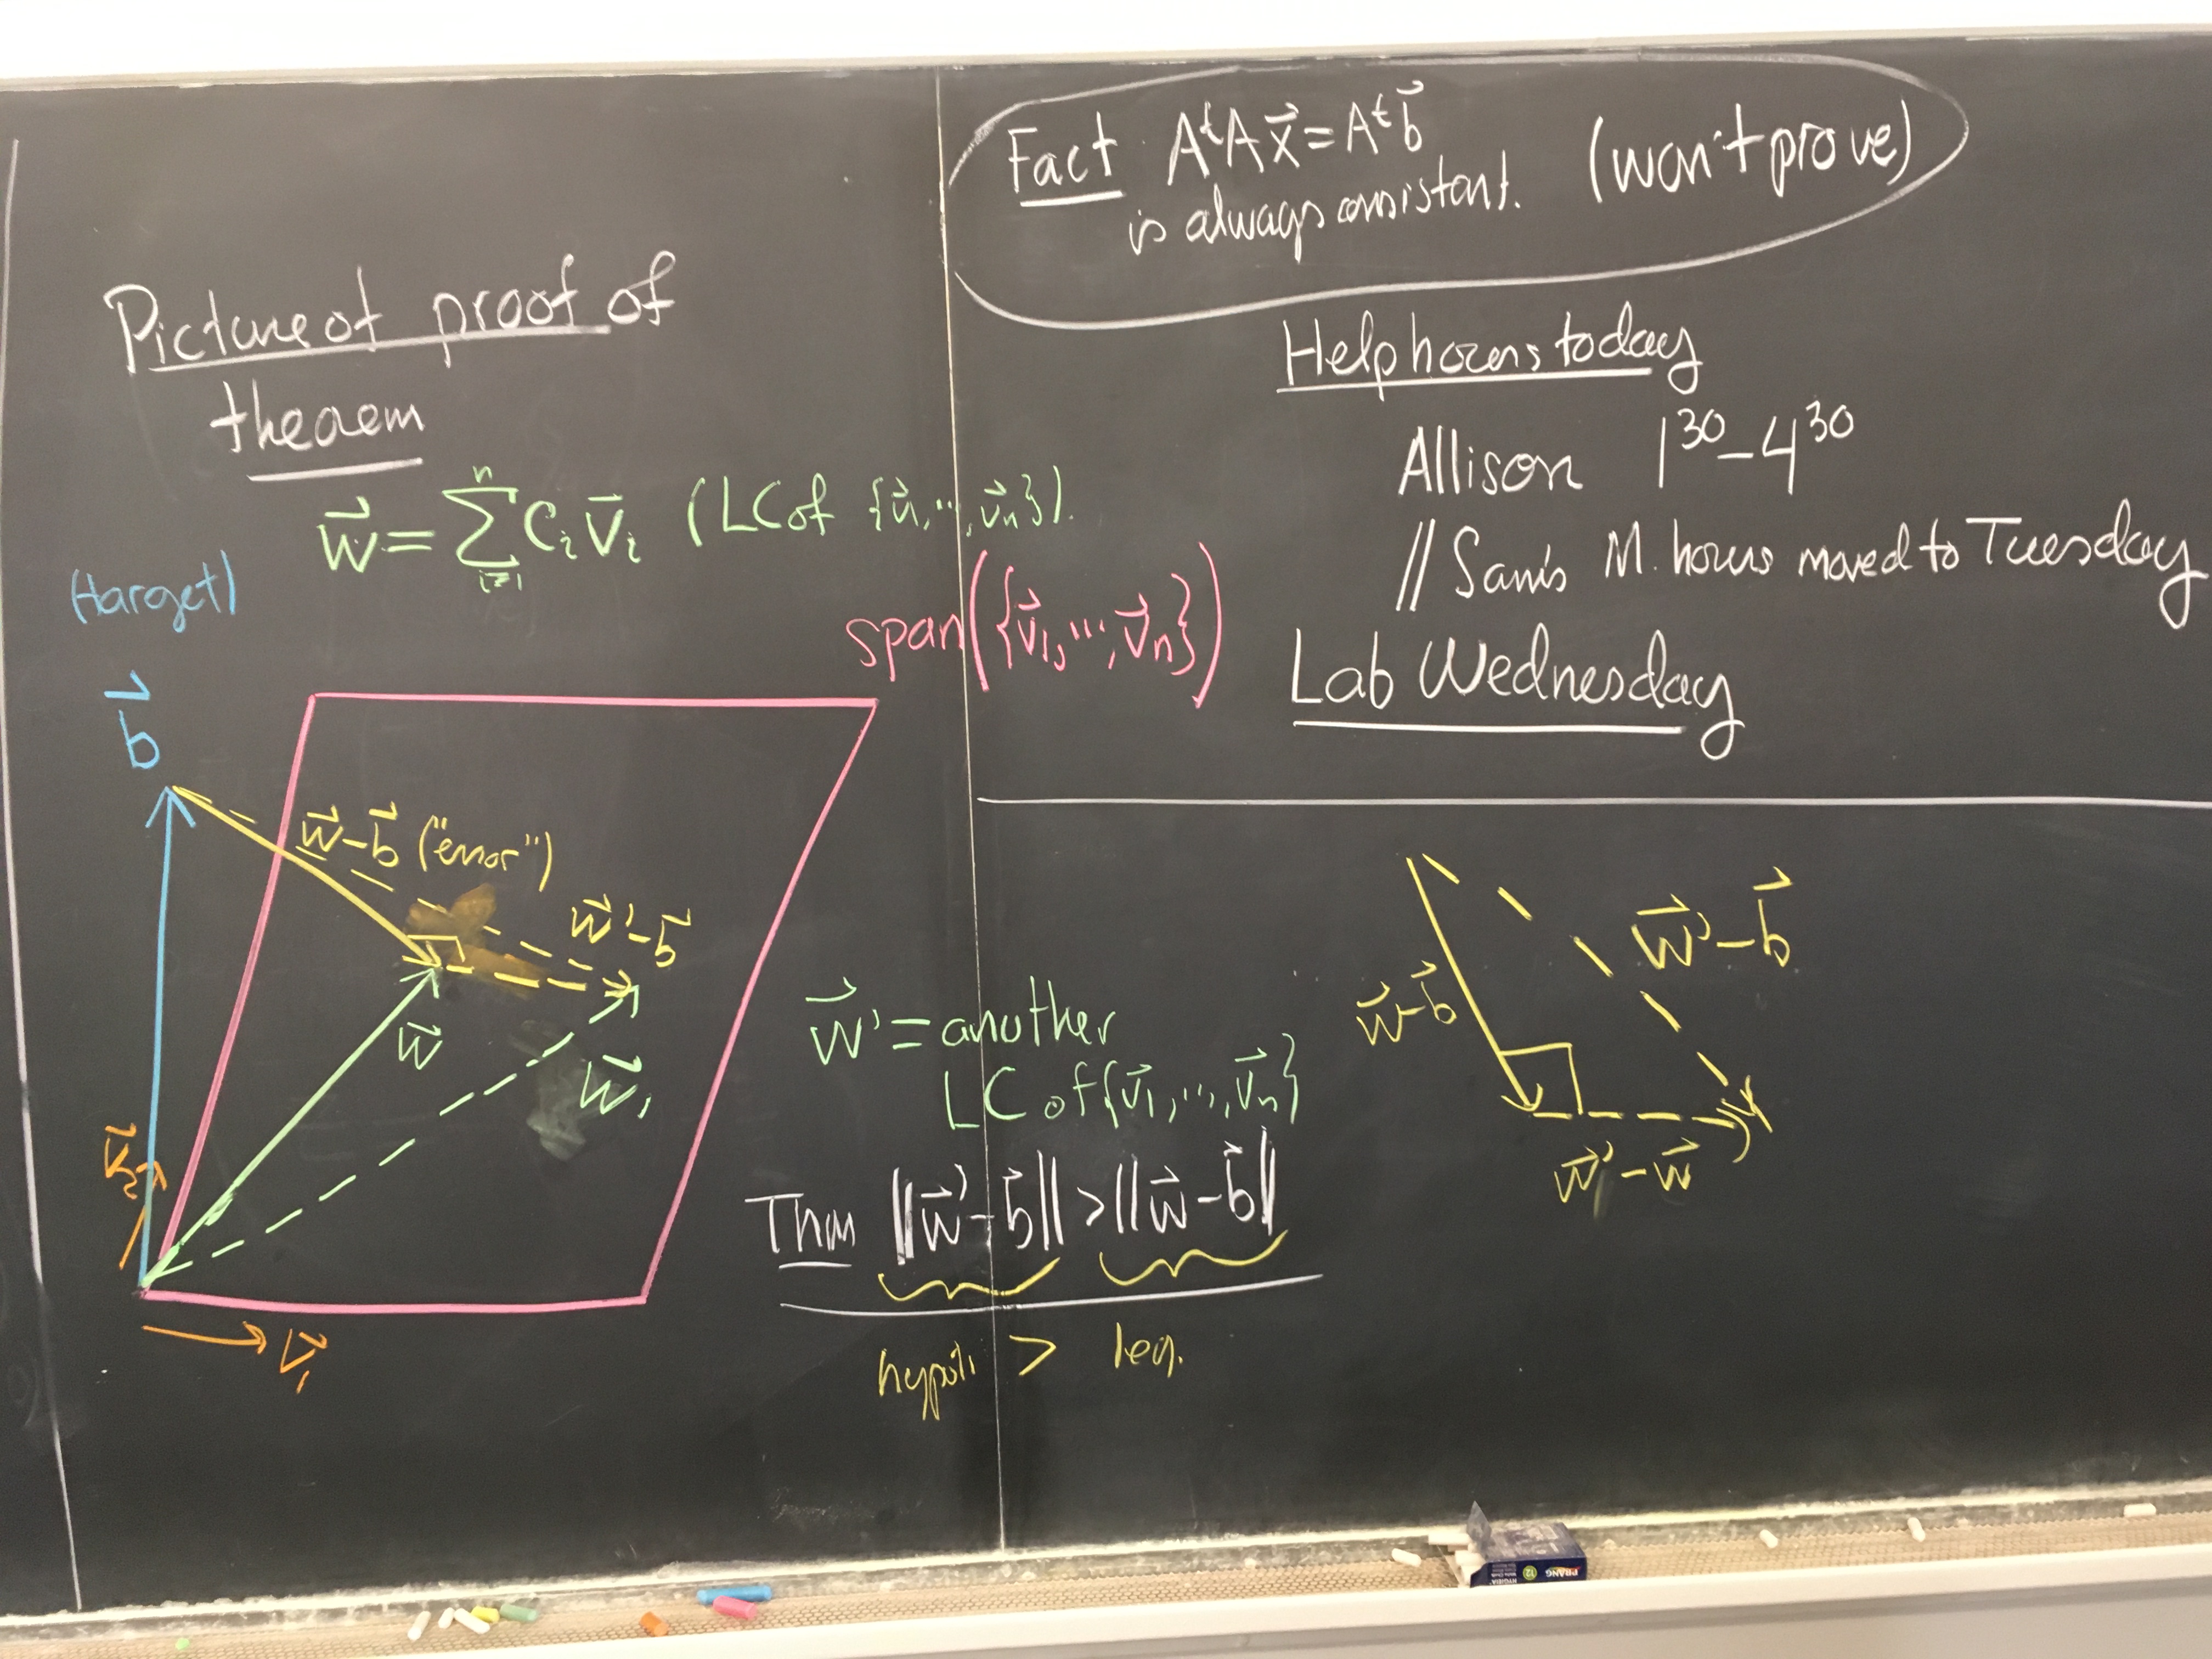 Picture of proof of
theorem
w⃗ = ∑ᵢ₌₁ⁿ Cᵢ v⃗ᵢ (LC of {v⃗₁, ..., v⃗ₙ}).
(target)
b⃗
span({v⃗₁, ..., v⃗ₙ})
w⃗-b⃗ ("error")
w⃗'-b⃗
w⃗
w⃗'
v⃗₂
v⃗₁
w⃗' = another
LC of {v⃗₁, ..., v⃗ₙ}
Thm ||w⃗'-b⃗|| > ||w⃗-b⃗||
hypot. > leg.
Fact AᵗAx⃗ = Aᵗb⃗
is always consistant. (won't prove)
Help hours today
Allison 1³⁰-4³⁰
// Sam's M. hours moved to Tuesday
Lab Wednesday
w⃗-b⃗
w⃗'-b⃗
w⃗'-w⃗
PRANG
HYGIEIA
12